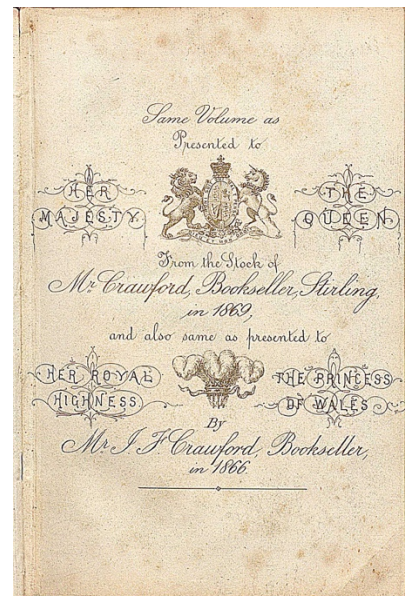 Same Volume as
Presented to
HER MAJESTY
THE QUEEN
From the Stock of
Mr Crawford, Bookseller, Stirling,
in 1869,
and also same as presented to
HER ROYAL HIGHNESS
THE PRINCESS OF WALES
By
Mr J. F. Crawford, Bookseller,
in 1866.